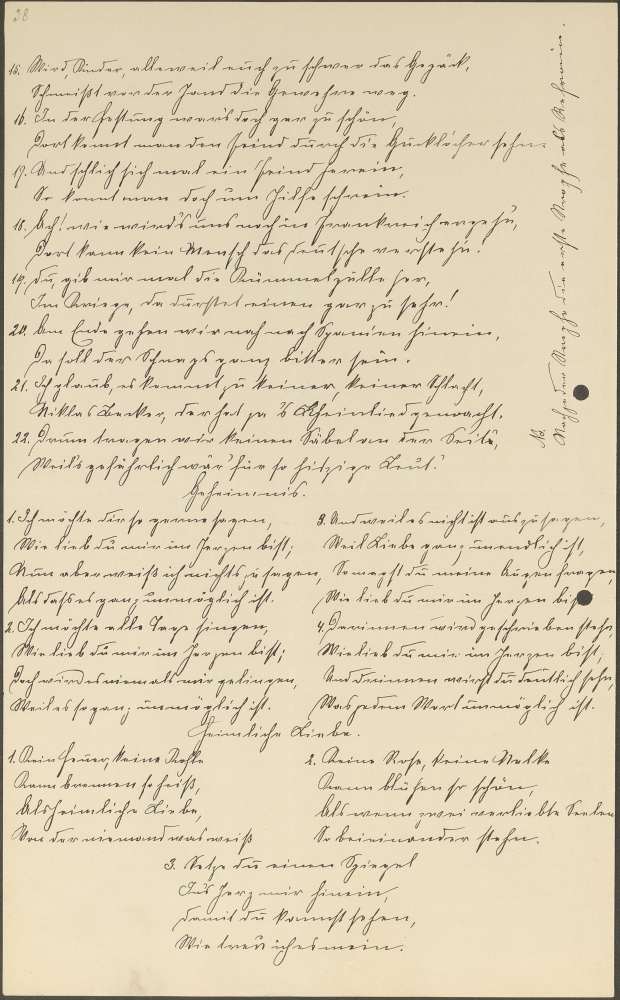 38
15. Wird, Kinder, alleweil euch zu schwer das Gepäck,
Schmeißt vor der Hand die Gewehre weg.
16. In der Festung wär's doch gar zu schön,
Dort kennt man den Feind durch die Gucklöcher sehn.
17. Und schlich sich mal ein Feind herein,
So kennt man doch um Hilfe schrein.
18. Ach! wie wird's uns noch in Frankreich ergehn,
Dort kann kein Mensch das deutsche verstehn!
19. Du, gib mir mal die Kümmelpulle her,
Im Kriege, da dürstet einen gar zu sehr!
20. Am Ende gehen wir noch nach Spanien hinein,
Da soll der Schnaps ganz bitter sein.
21. Ich glaub, es kommt zu keiner, keiner Schlacht,
Niklas Becker, der hat ja 's Rheinlied gemacht.
22. Drum tragen wir keinen Säbel an der Seite,
Weil's gefährlich wär' für so hitzige Leut!
NB. Nach jeder Strophe die erste Strophe als Refrain.
Geheimnis.
1. Ich möchte dir so gerne sagen,
Wie lieb du mir im Herzen bist;
Nun aber weiß ich nichts zu sagen,
Als daß es ganz unmöglich ist.
2. Ich möchte alle Tage singen,
Wie lieb du mir im Herzen bist;
Doch wird es niemals mir gelingen,
Weil es so ganz unmöglich ist.
3. Und weil es nicht ist auszusagen,
Weil Liebe ganz unendlich ist,
So magst du meine Augen fragen,
Wie lieb du mir im Herzen bist.
4. Darinnen wird geschrieben stehn,
Wie lieb du mir im Herzen bist;
Und drinnen wirst du deutlich sehn,
Was jedem Wort unmöglich ist.
Heimliche Liebe.
1. Kein Feuer, keine Kohle
Kann brennen so heiß,
Als heimliche Liebe,
Von der niemand was weiß
2. Keine Rose, keine Nelke
Kann blühen so schön,
Als wenn zwei verliebte Seelen
So beieinander stehn.
3. Setze du einen Spiegel
Ins Herz mir hinein,
damit du kannst sehen,
Wie treu ich es mein.